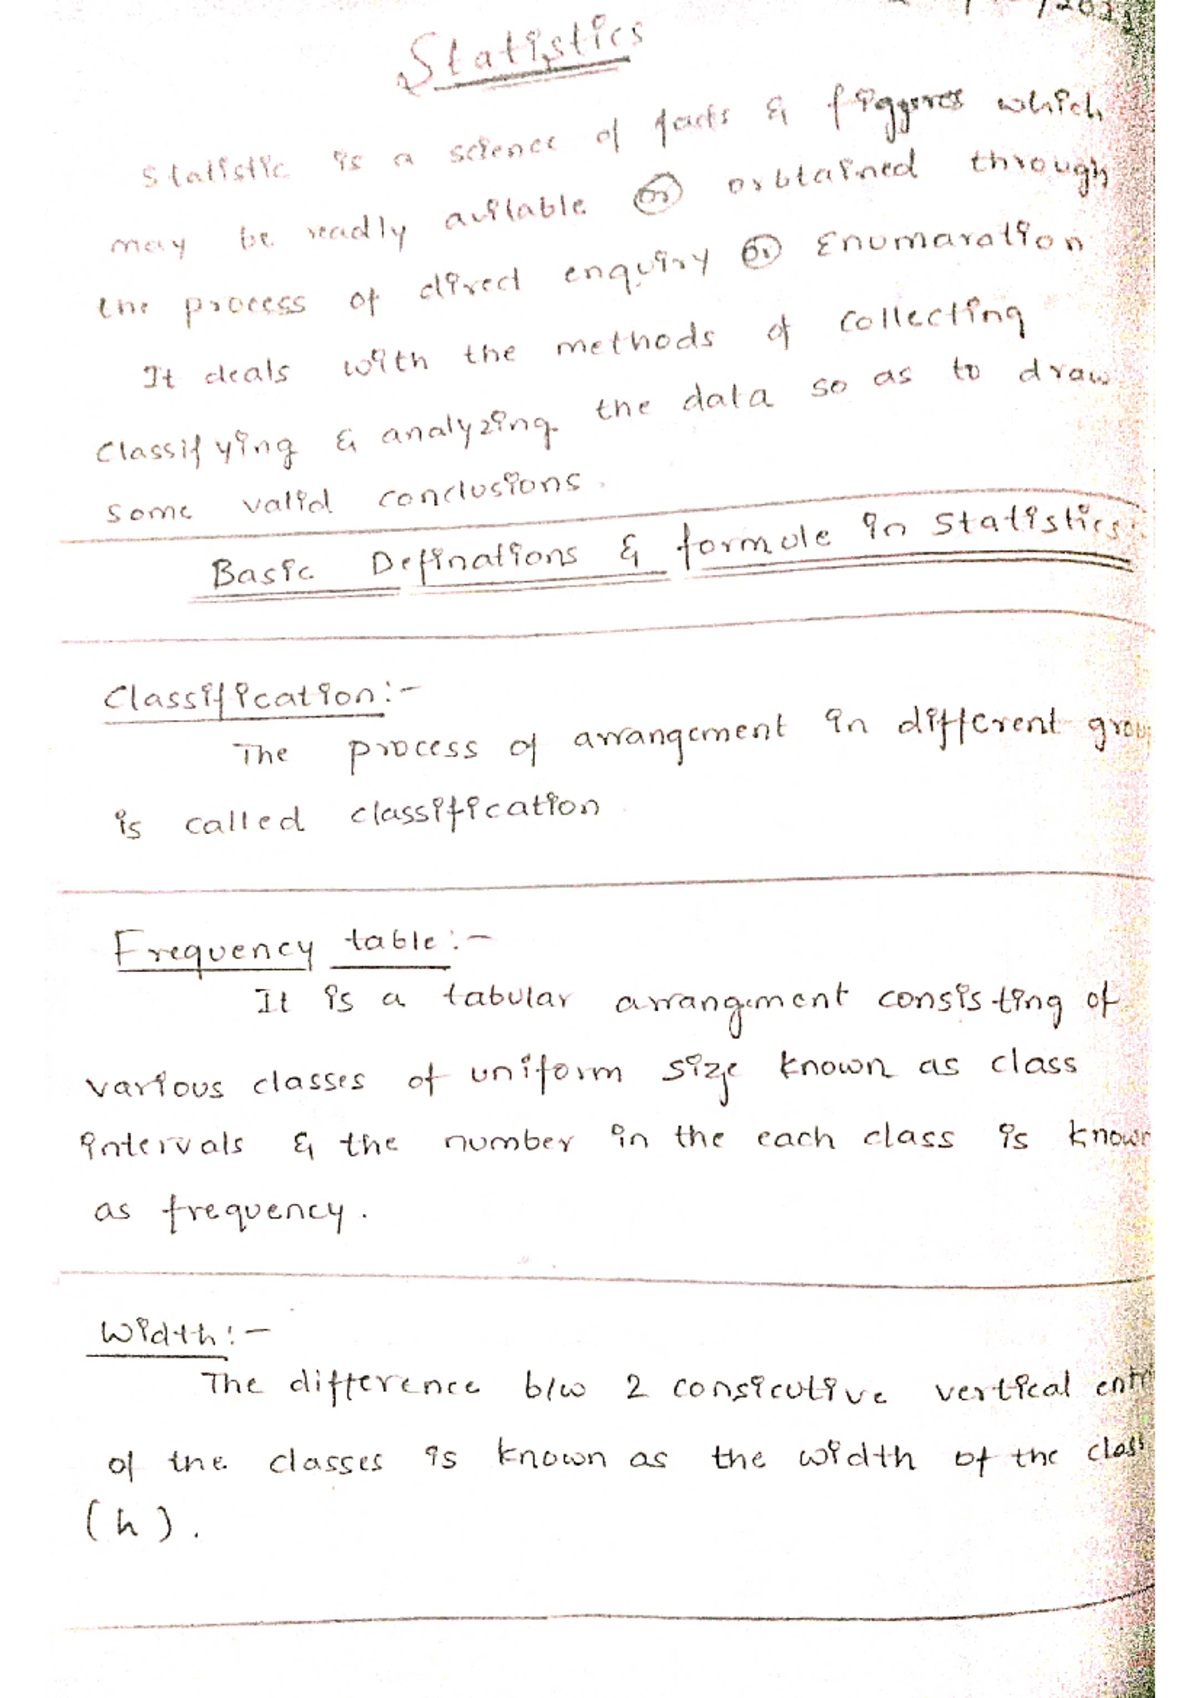 Statistics
Statistic is a science of facts & figgeres which
may be readly avilable or orbtained through
the process of direct enquiry or Enumaration
It deals with the methods of collecting
Classifying & analyzing the data so as to draw
some valid conclusions.
Basic Definations & formule in Statistics.
Classification:-
The process of arrangement in different grou
is called classification
Frequency table:-
It is a tabular arrangement consisting of
various classes of uniform size known as class
intervals & the number in the each class is known
as frequency.
Width:-
The difference b/w 2 consicutive vertical
of the classes is known as the width of the class
(h).